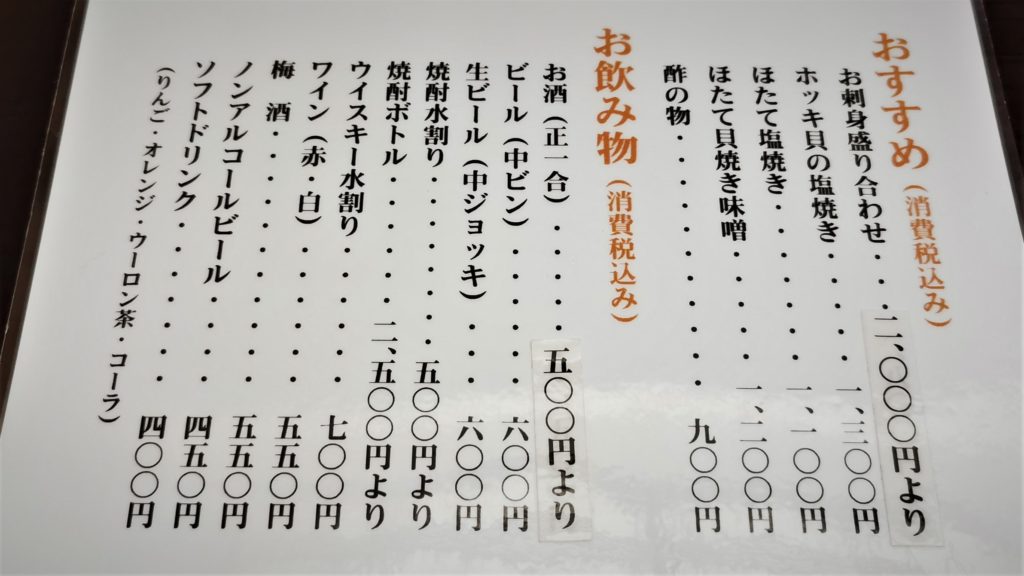 おすすめ（消費税込み）
お刺身盛り合わせ・・・二、〇〇〇円より
ホッキ貝の塩焼き・・・・一、三〇〇円
ほたて塩焼き・・・・・・一、一〇〇円
ほたて貝焼き味噌・・・・一、二〇〇円
酢の物・・・・・・・・九〇〇円
お飲み物（消費税込み）
お酒（正一合）・・・・五〇〇円より
ビール（中ビン）・・・・・六〇〇円
生ビール（中ジョッキ）・・・六〇〇円
焼酎水割り・・・・・・・五〇〇円より
焼酎ボトル・・・・・・二、五〇〇円より
ウイスキー水割り・・・・・七〇〇円
ワイン（赤・白）・・・・・五五〇円
梅　酒・・・・・・・・五五〇円
ノンアルコールビール・・・・四五〇円
ソフトドリンク・・・・・・四〇〇円
（りんご・オレンジ・ウーロン茶・コーラ）